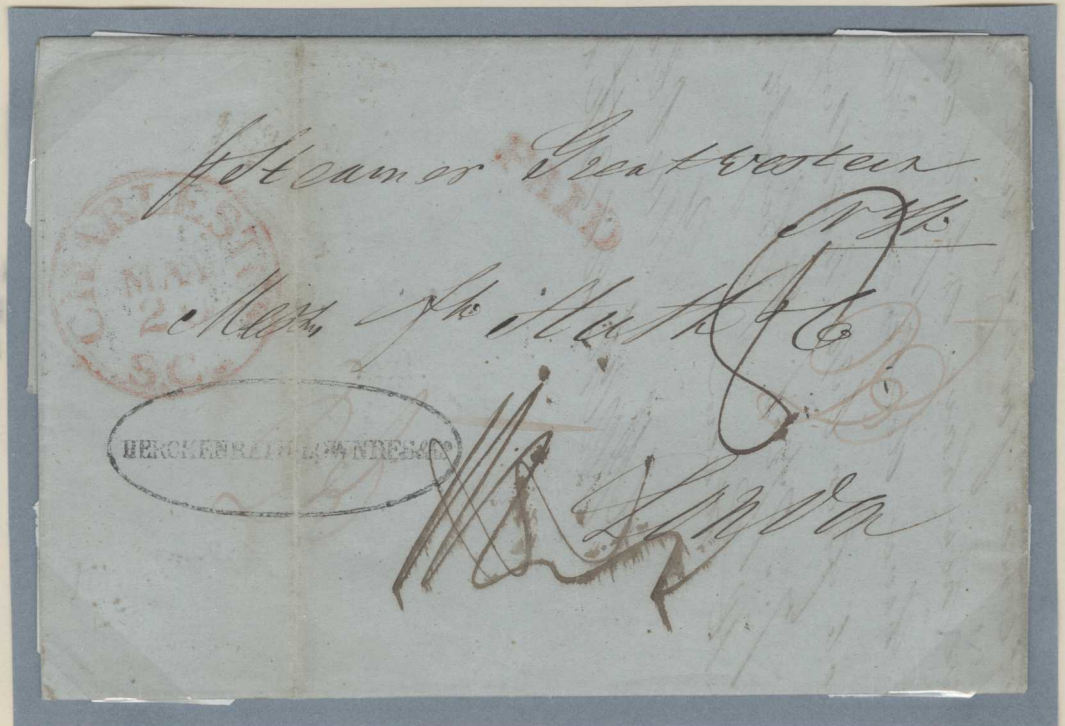 Steamer Great Western
N Yk
PAID
CHARLESTON
MAY
S.C.
Mess Fk Huth & Co
HERCKENRATH LOWNDES & Co
London